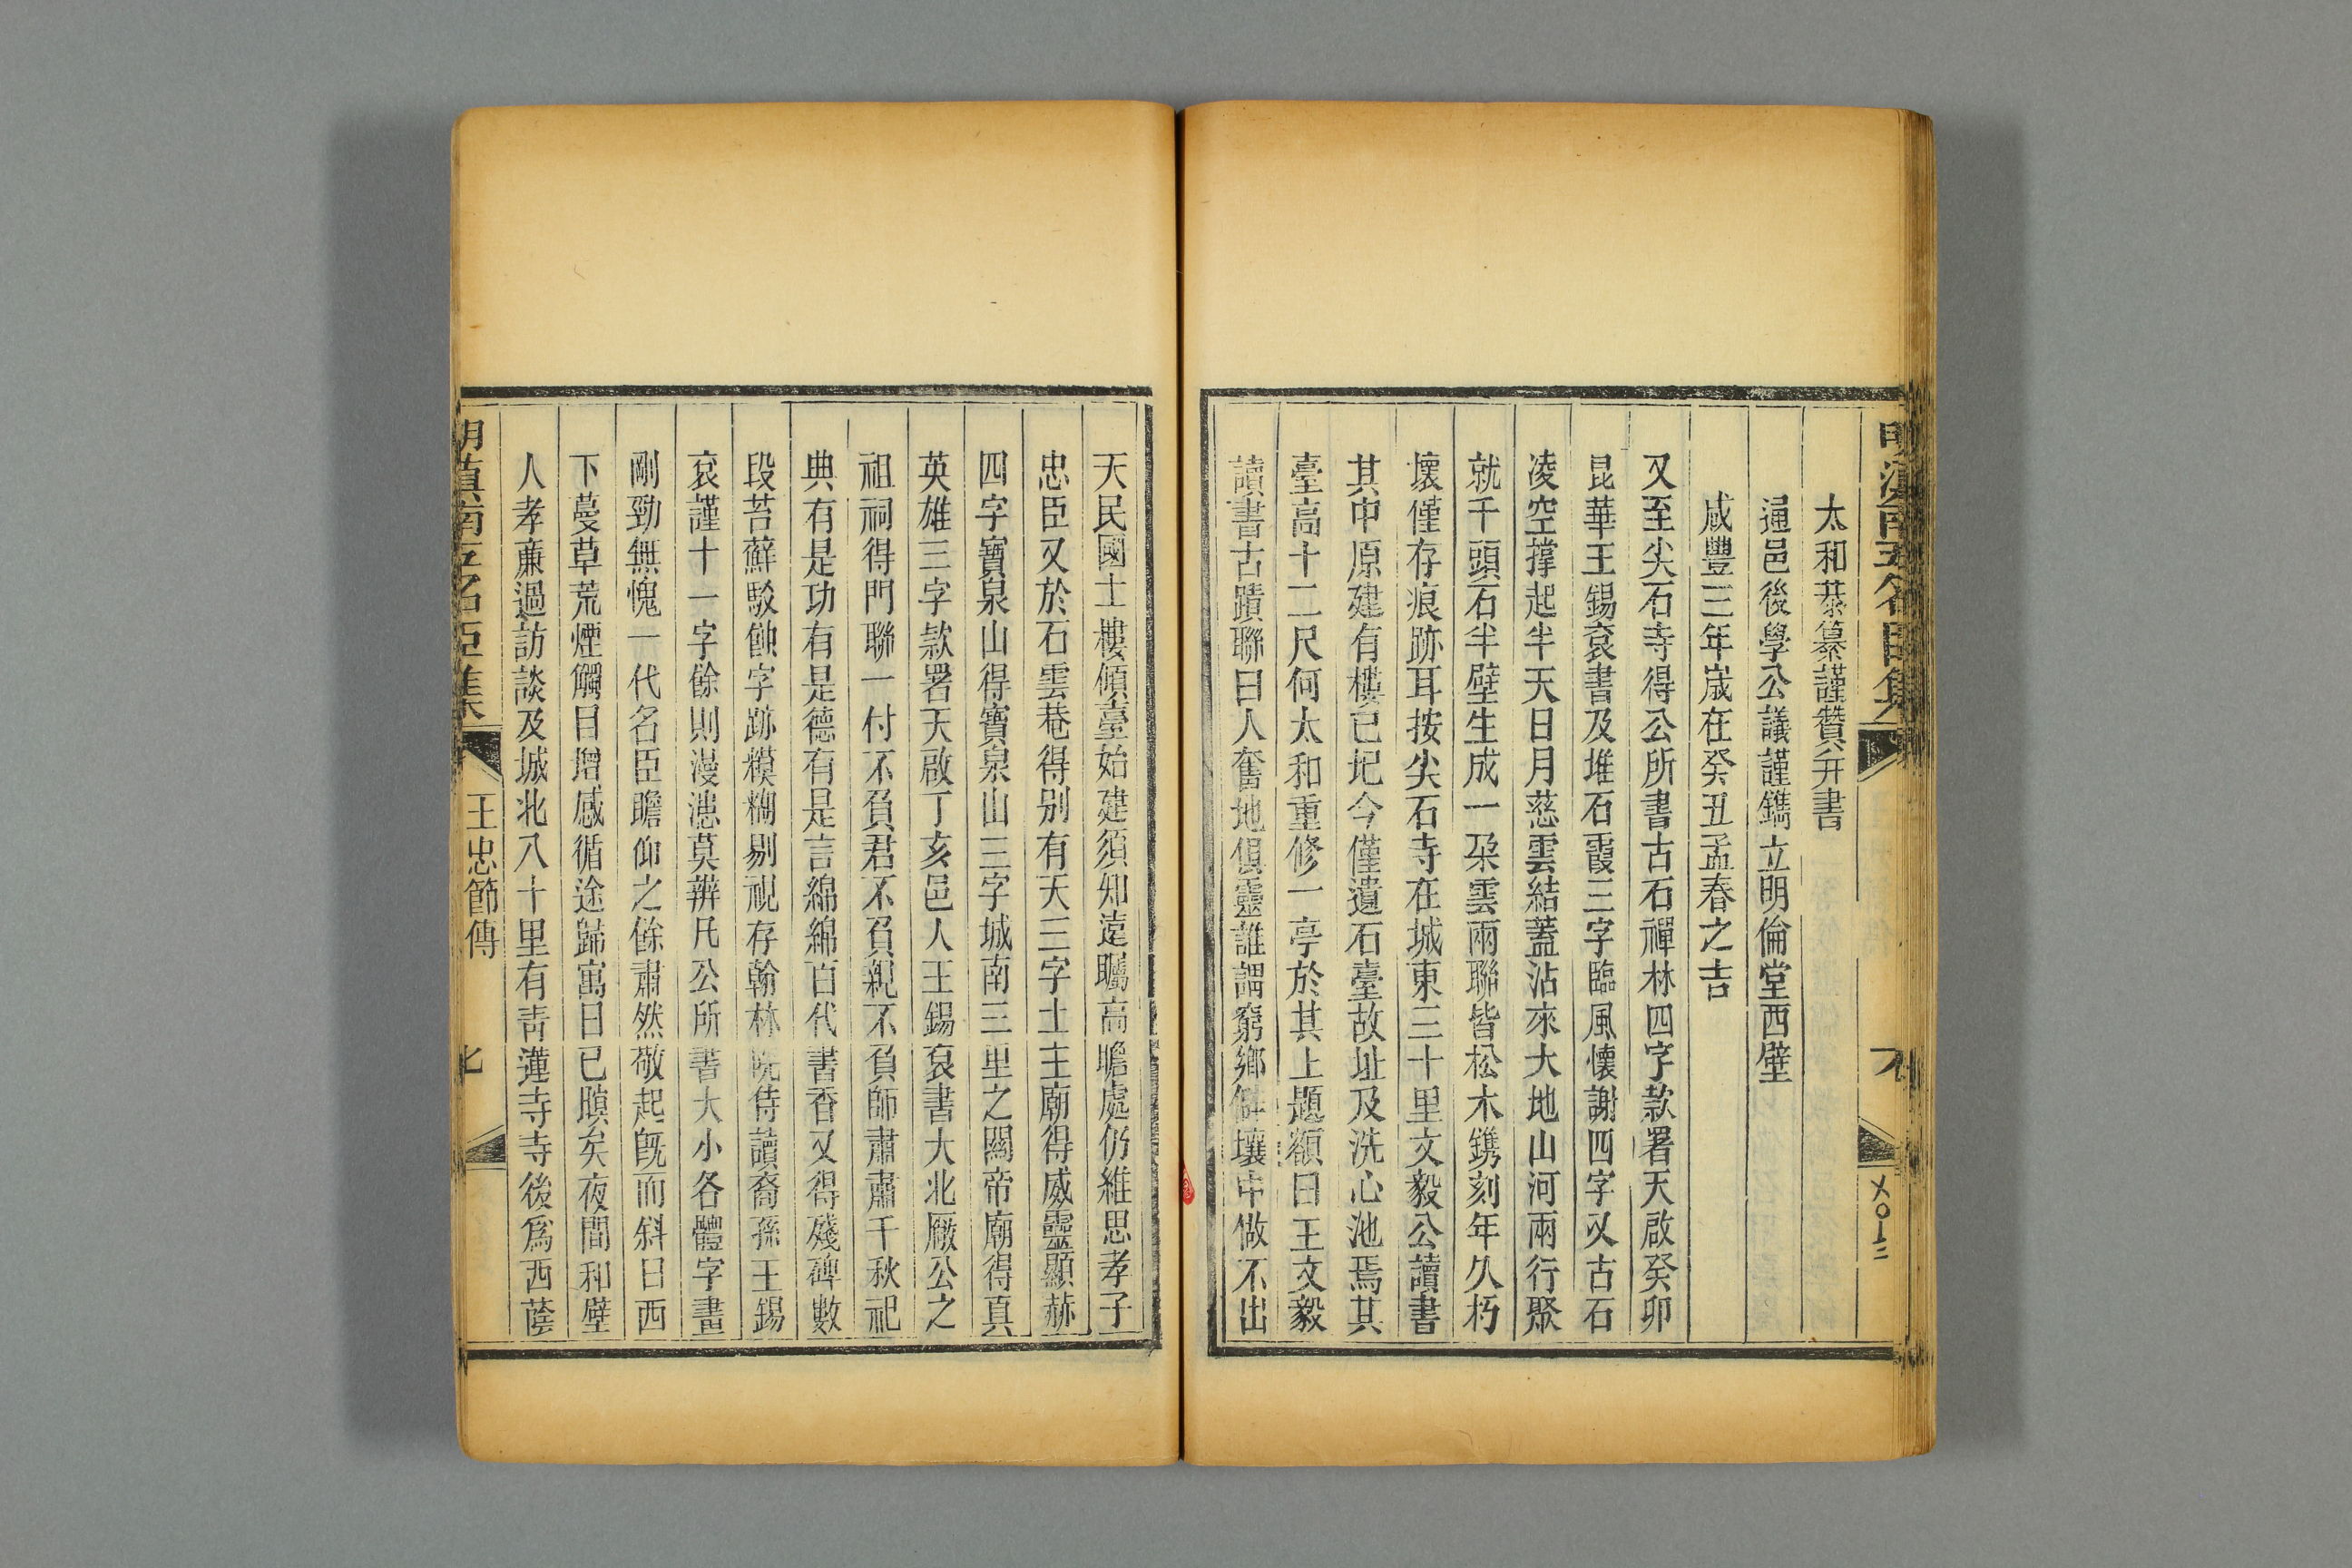 明滇南五名臣集
太和恭纂謹贊幷書
通邑後學公議謹鐫立明倫堂西壁
咸豐三年歲在癸丑孟春之吉
又至尖石寺得公所書古石禪林四字款署天啟癸卯
昆華王錫袞書及堆石霞三字臨風懷謝四字又古石
凌空撑起半天日月慈雲結蓋沾來大地山河兩行聚
就千頭石半壁生成一朶雲兩聯皆松木鎸刻年久朽
壞僅存痕跡耳按尖石寺在城東三十里文毅公讀書
其中原建有樓已圮今僅遺石臺故址及洗心池焉其
臺高十二尺何太和重修一亭於其上題額曰王文毅
讀書古蹟聯曰人奮地俱靈誰謂窮鄉僻壤中做不出
天民國士樓傾臺始建須知遠矚高瞻處仍維思孝子
忠臣又於石雲菴得別有天三字土主廟得威靈顯赫
四字寶泉山得寶泉山三字城南三里之關帝廟得真
英雄三字款署天啟丁亥邑人王錫袞書大北厰公之
祖祠得門聯一付不負君不負親不負師肅肅千秋祀
典有是功有是德有是言綿綿百代書香又得殘碑數
段苔蘚駁蝕字跡糢糊剔視存翰林院侍讀裔孫王錫
袞謹十一字餘則漫漶莫辨凡公所書大小各體字畫
剛勁無愧一代名臣瞻仰之餘肅然敬起旣而斜日西
下蔓草荒煙觸目增感循途歸寓日已暝矣夜間和璧
人孝廉過訪談及城北八十里有靑蓮寺寺後爲西蔭
明滇南五名臣集
王忠節傳